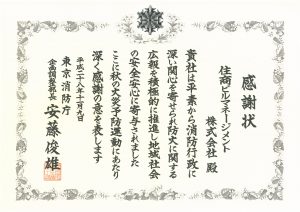 感謝状
住商ビルマネージメント
株式会社 殿
貴社は平素から消防行政に
深い関心を寄せられ防火に関する
広報を積極的に推進し地域社会
の安全安心に寄与されました
ここに秋の火災予防運動にあたり
深く感謝の意を表します
平成二十八年十一月九日
東京消防庁
企画調整部長 安藤俊雄